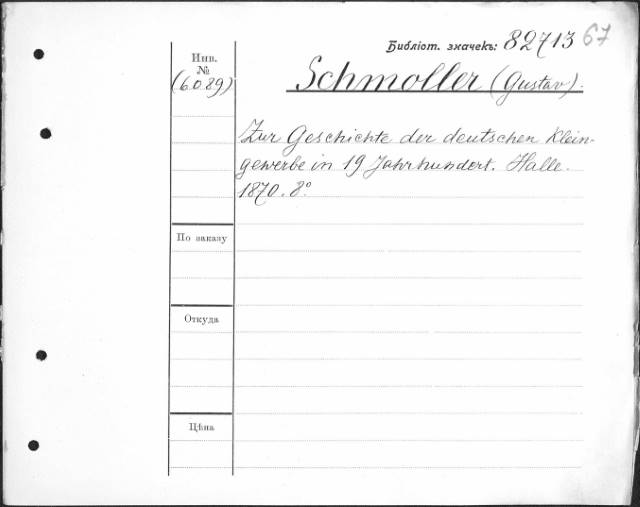 Библіот. значекъ: 82713 67
Инв.
№
(6.0.89)
Schmoller (Gustav).
Zur Geschichte der deutschen Klein-
gewerbe in 19 Jahrhundert. Halle.
1870. 8°
По заказу
Откуда
Цѣна